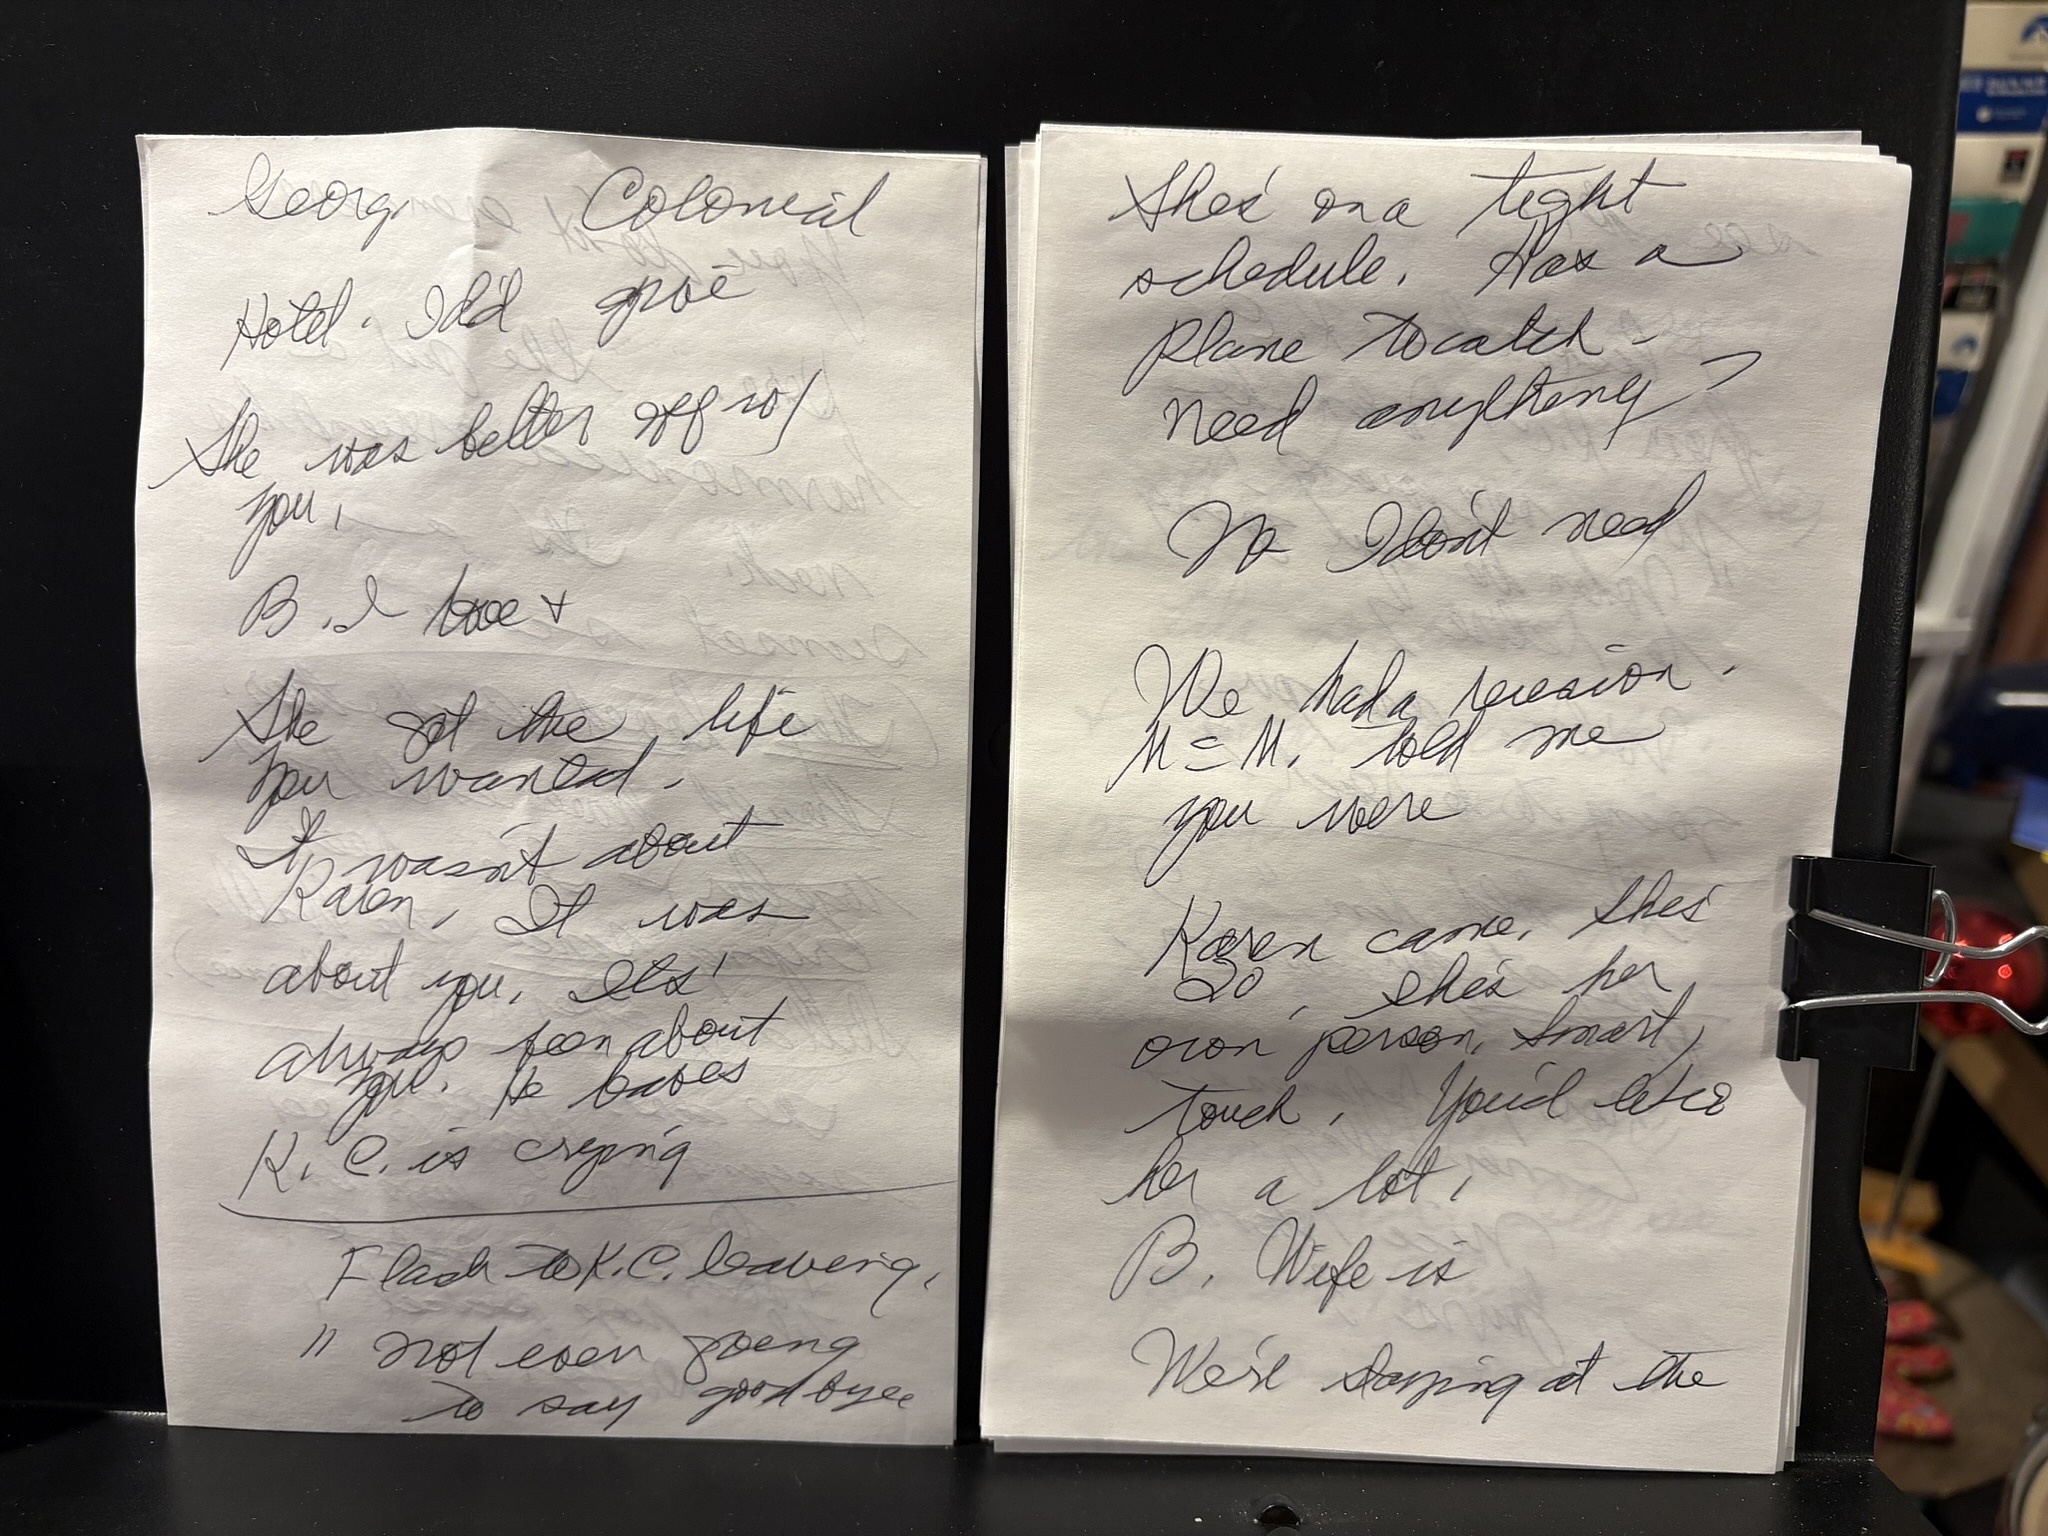 Georg Colonial
Hotel. I'd give
She was better off w/
you.
B. I love +
She got the life
you wanted.
It wasn't about
Karen, It was
about you, Its'
always been about
you. He leaves
K. C. is crying
Flash to K.C. leaving,
" not even going
to say goodbye
She's on a tight
schedule. Has a
plane to catch.
Need anything?
No I don't need
We had a
M = M. told me
you were
Karen came, She's
20, She's her
own person, Smart,
touch. You'd like
her a lot.
B. Wife is
We're staying at the